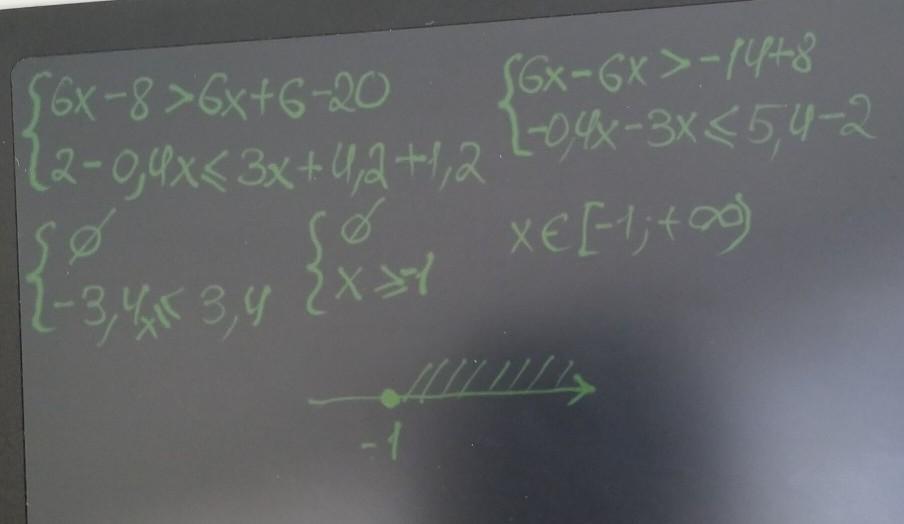 {6x-8>6x+6-20
{2-0,4x≤3x+4,2+1,2
{6x-6x>-14+8
{-0,4x-3x≤5,4-2
{∅
{-3,4x≤3,4
{∅
{x≥-1
x∈[-1;+∞)
-1